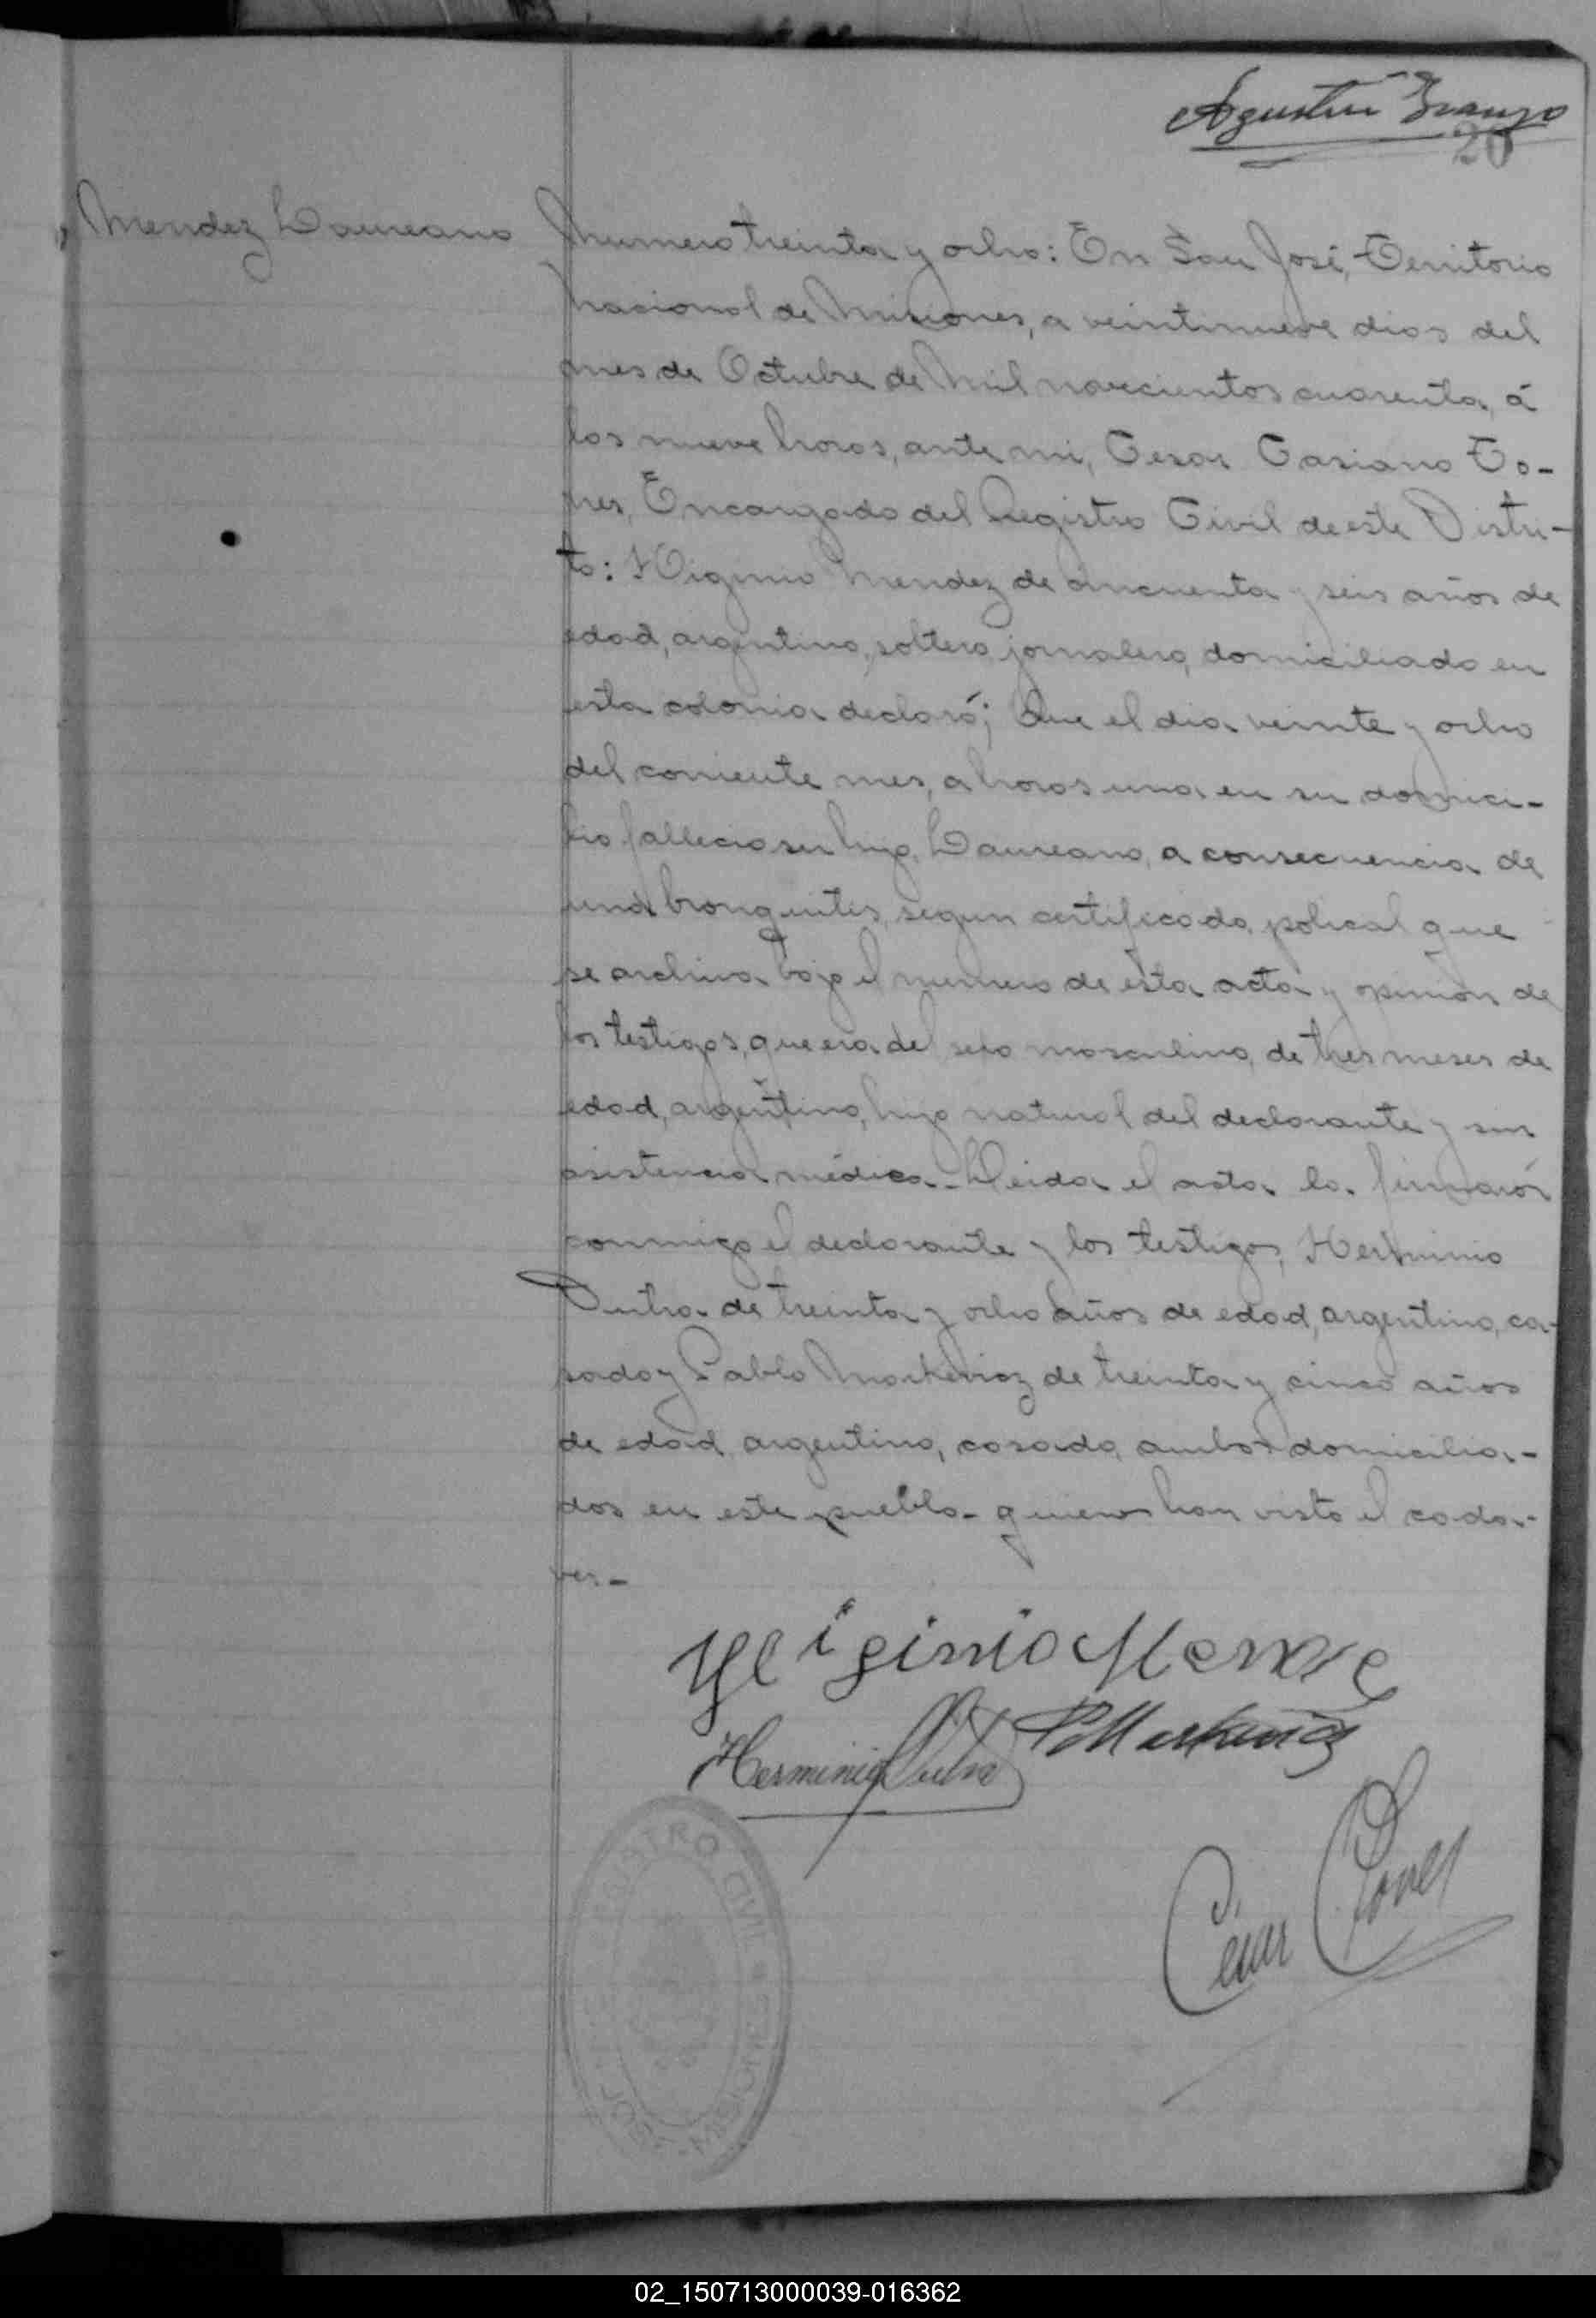 Agustin
20
Mendez Laureano
Numero treinta y ocho: En San José, Territorio
Nacional de Misiones, a veintinueve dias del
mes de Octubre de Mil novecientos cuarenta, á
las nueve horas, ante mi, Cesar Casiano To-
rres, Encargado del Registro Civil de este Distri-
to: Higinio Mendez de cincuenta y seis años de
edad, argentino, soltero, jornalero, domiciliado en
esta colonia declaró; Que el dia veinte y ocho
del corriente mes, a horas una en su domici-
lio fallecio su hijo, Laureano, a consecuencia de
una bronquitis, segun certificado, polical que
se archiva bajo el numero de esta acta y opinion de
los testigos, que era del sexo masculino, de tres meses de
edad, argentino, hijo natural del declarante y sin
asistencia médica. Leida el acta la firmarón
conmigo el declarante y los testigos, Herminio
Dutra de treinta y ocho años de edad, argentino, ca-
sado y Pablo Markevicz de treinta y cinco años
de edad, argentino, casado, ambos domicilia-
dos en este pueblo - quienes han visto el cada-
ver.-
Higinio Mende
Herminio Dutra P Markevicz
Cesar Torres
REGISTRO CIVIL
MISIONES
JOSE
02_150713000039-016362